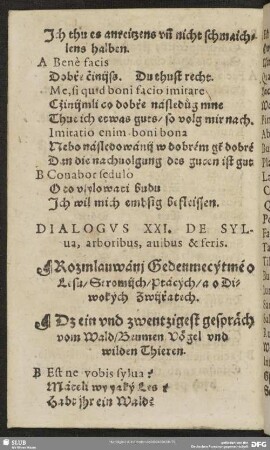 Jch thu es anreitzens vñ nicht schmaich-
lens halben.
A Benè facis
Dobře činijss. Du thust recht.
Me, si quid boni facio imitare
Cžinijmli co dobře následůg mne
Thue ich etwas guts / so volg mir nach.
Imitatio enim boni bona
Nebo následowánij w dobrém gť dobré
Dan die nachuolgung des guten ist gut
B Conabor sedulo
O to vsylowati budu
Jch wil mich embsig befleissen.
DIALOGVS XXI. DE SYL-
ua, arboribus, auibus & feris.
Rozmlauwánj Gedenmecýtmé o
Lesu / Stromijch / Ptácých / a o Di-
wokých Zwijřatech.
Dz ein vnd zwentzigest gespräch
vom Wald / Beumen Vögel vnd
wilden Thieren.
B Est ne vobis sylua?
Máteli wy yaký Les?
Habt jhr ein Wald?
SLUB